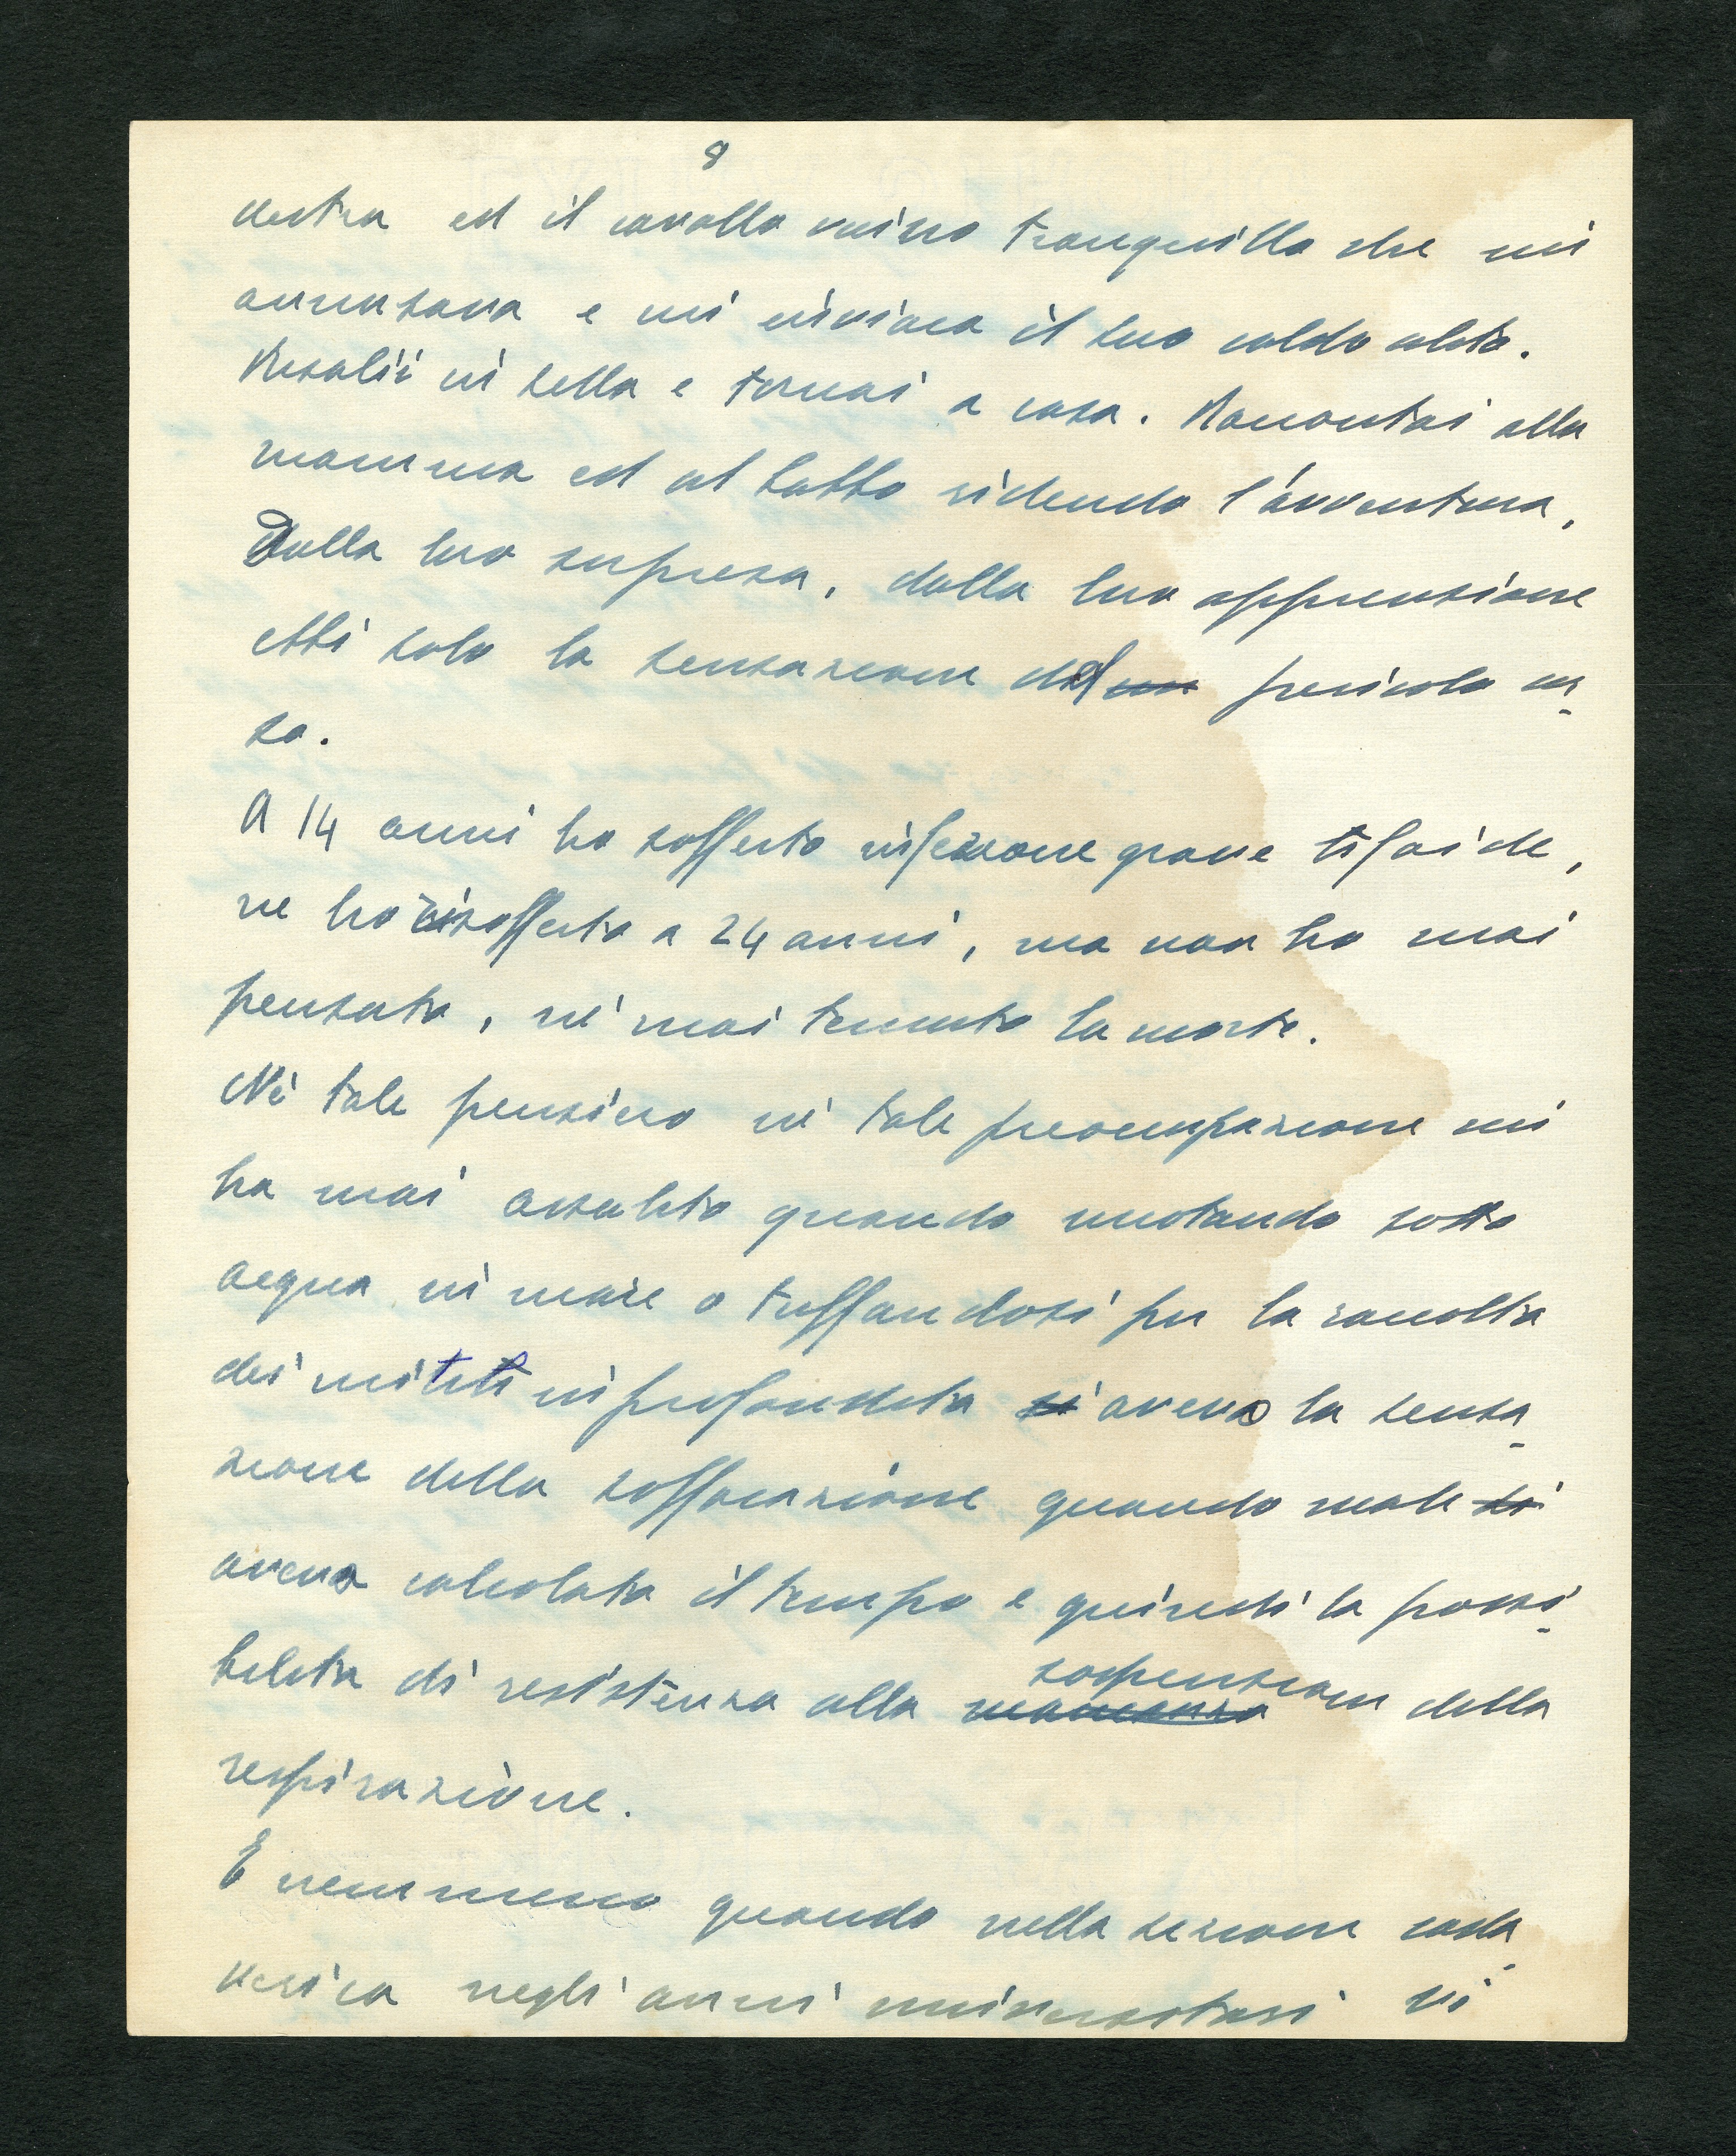 8
destra ed il cavallo vicino tranquillo che mi
annusava e mi inviava il suo caldo alito.
Risalii in sella e tornai a casa. Raccontai alla
mamma ed al babbo ridendo l'avventura,
Dalla loro sorpresa, dalla loro apprensione
ebbi solo la sensazione del un pericolo cor-
so.
A 14 anni ho sofferto infezione grave tifoide,
ne ho risofferto a 24 anni, ma non ho mai
pensato, nè mai temuto la morte.
Nè tale pensiero nè tale preoccupazione mi
ha mai assalito quando nuotando sotto
acqua in mare o tuffandosi per la raccolta
dei mitili in profondità si avevo la sensa-
zione della soffocazione quando male si
avevo calcolato il tempo e quindi la possi-
bilità di resistenza alla mancanza sospensione della
respirazione.
E nemmeno quando nella sezione cada-
verica negli anni universitari si